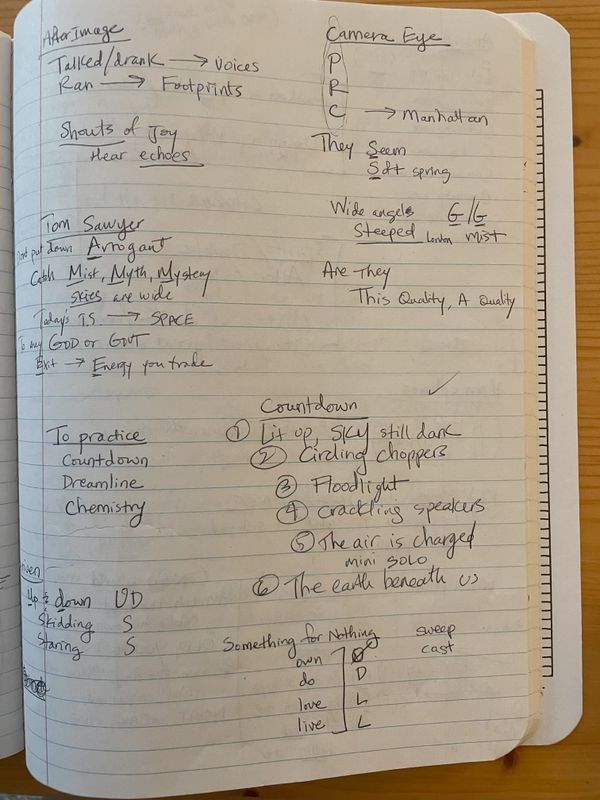 AfterImage
Talked/drank → voices
Ran → Footprints
Shouts of Joy
Hear echoes
Camera Eye
P
R
C → Manhattan
They Seem
Soft spring
Wide angels G/G
Steeped London mist
Are They
This Quality, A Quality
Tom Sawyer
Dont put down Arrogant
Catch Mist, Myth, Mystery
skies are wide
Today's T.S. → SPACE
To my GOD or GOVT
Exit → Energy you trade
To practice
Countdown
Dreamline
Chemistry
Countdown
① Lit up, Sky still dark
② Circling choppers
③ Floodlight
④ crackling speakers
⑤ The air is charged
mini solo
⑥ The earth beneath us
Driven
Up & down UD
Skidding S
Staring S
Something for Nothing
own O
do D
love L
live L
sweep
cast